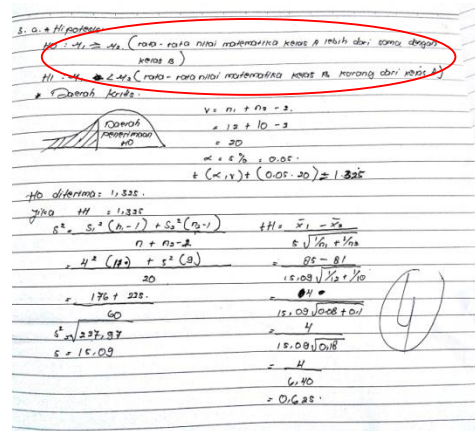 3. a. * Hipotesis
H0 : μ1 ≥ μ2. (rata-rata nilai matematika kelas A lebih dari sama dengan
kelas B)
H1 : μ1 < μ2 (rata-rata nilai matematika kelas B kurang dari kelas A)
* Daerah kritis
V = n1 + n2 - 2.
Daerah
penerimaan
H0
= 12 + 10 - 2
= 20
α = 5% = 0.05.
t (α, v) t (0.05. 20) = 1.325
H0 diterima = 1,325.
jika tH = 1,325
S² = S1² (n1 - 1) + S2² (n2 - 1)
n + n2 - 2
= 4² (11) + 5² (9)
20
= 176 + 225.
60
S² = √227,97
S = 15,09
tH = x̄1 - x̄2
S √1/n1 + 1/n2
= 85 - 81
15,09 √1/12 + 1/10
= 4
15,09 √0.08 + 0.1
= 4
15.09 √0,18
= 4
6,40
= 0,625.
4